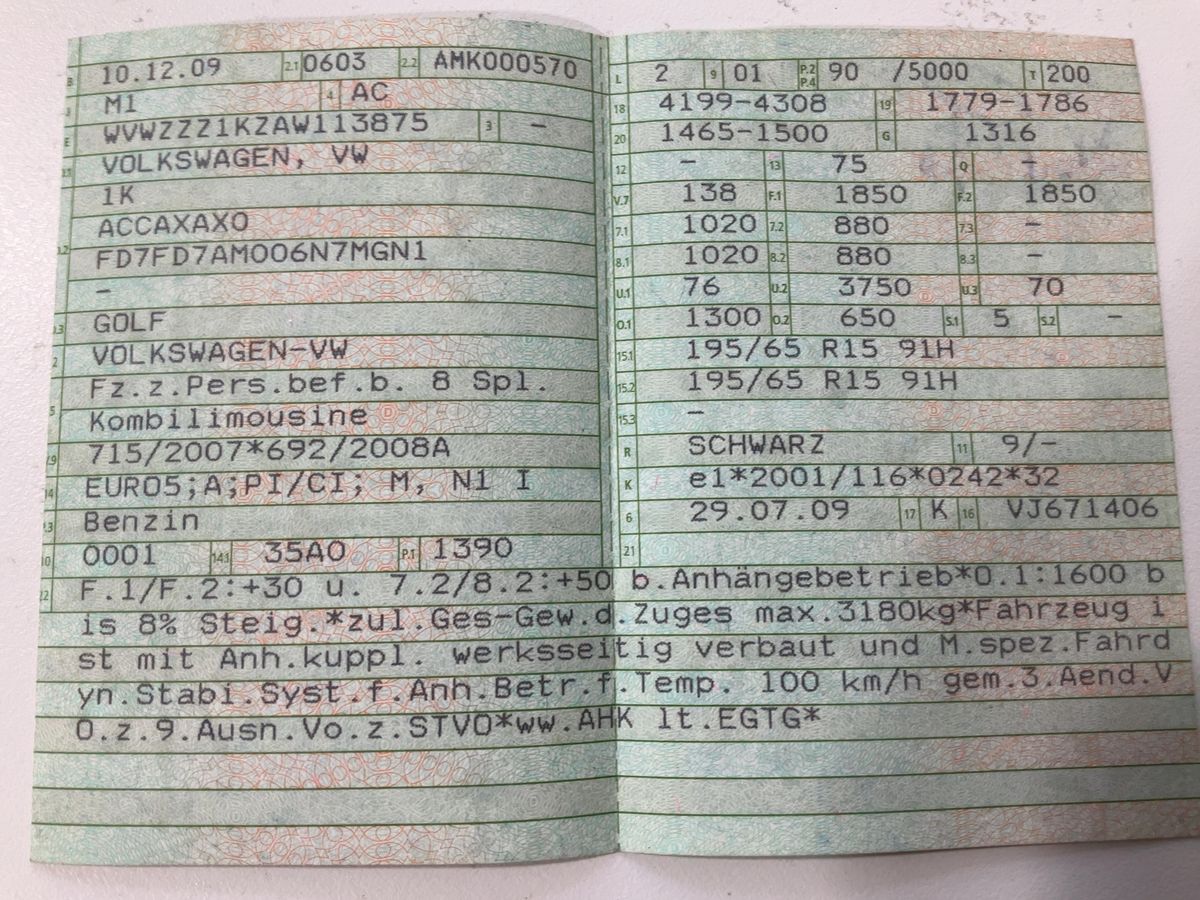 B 10.12.09 2.1 0603 2.2 AMK000570
J M1 4 AC
E WVWZZZ1KZAW113875 3 –
VOLKSWAGEN, VW
1K
ACCAXAX0
FD7FD7AM006N7MGN1
–
GOLF
VOLKSWAGEN-VW
Fz.z.Pers.bef.b. 8 Spl.
Kombilimousine
715/2007*692/2008A
EURO5;A;PI/CI; M, N1 I
Benzin
0001 14.1 35A0 P.1 1390
L 2 9 01 P.2 P.4 90 /5000 T 200
18 4199-4308 19 1779-1786
20 1465-1500 G 1316
12 – 13 75 Q –
V.7 138 F.1 1850 F.2 1850
7.1 1020 7.2 880 7.3 –
8.1 1020 8.2 880 8.3 –
U.1 76 U.2 3750 U.3 70
O.1 1300 O.2 650 S.1 5 S.2 –
15.1 195/65 R15 91H
15.2 195/65 R15 91H
15.3 –
R SCHWARZ 11 9/-
K e1*2001/116*0242*32
6 29.07.09 17 K 16 VJ671406
21
F.1/F.2:+30 u. 7.2/8.2:+50 b.Anhängebetrieb*O.1:1600 b
is 8% Steig.*zul.Ges-Gew.d.Zuges max.3180kg*Fahrzeug i
st mit Anh.kuppl. werksseitig verbaut und M.spez.Fahrd
yn.Stabi.Syst.f.Anh.Betr.f.Temp. 100 km/h gem.3.Aend.V
O.z.9.Ausn.Vo.z.STVO*ww.AHK lt.EGTG*